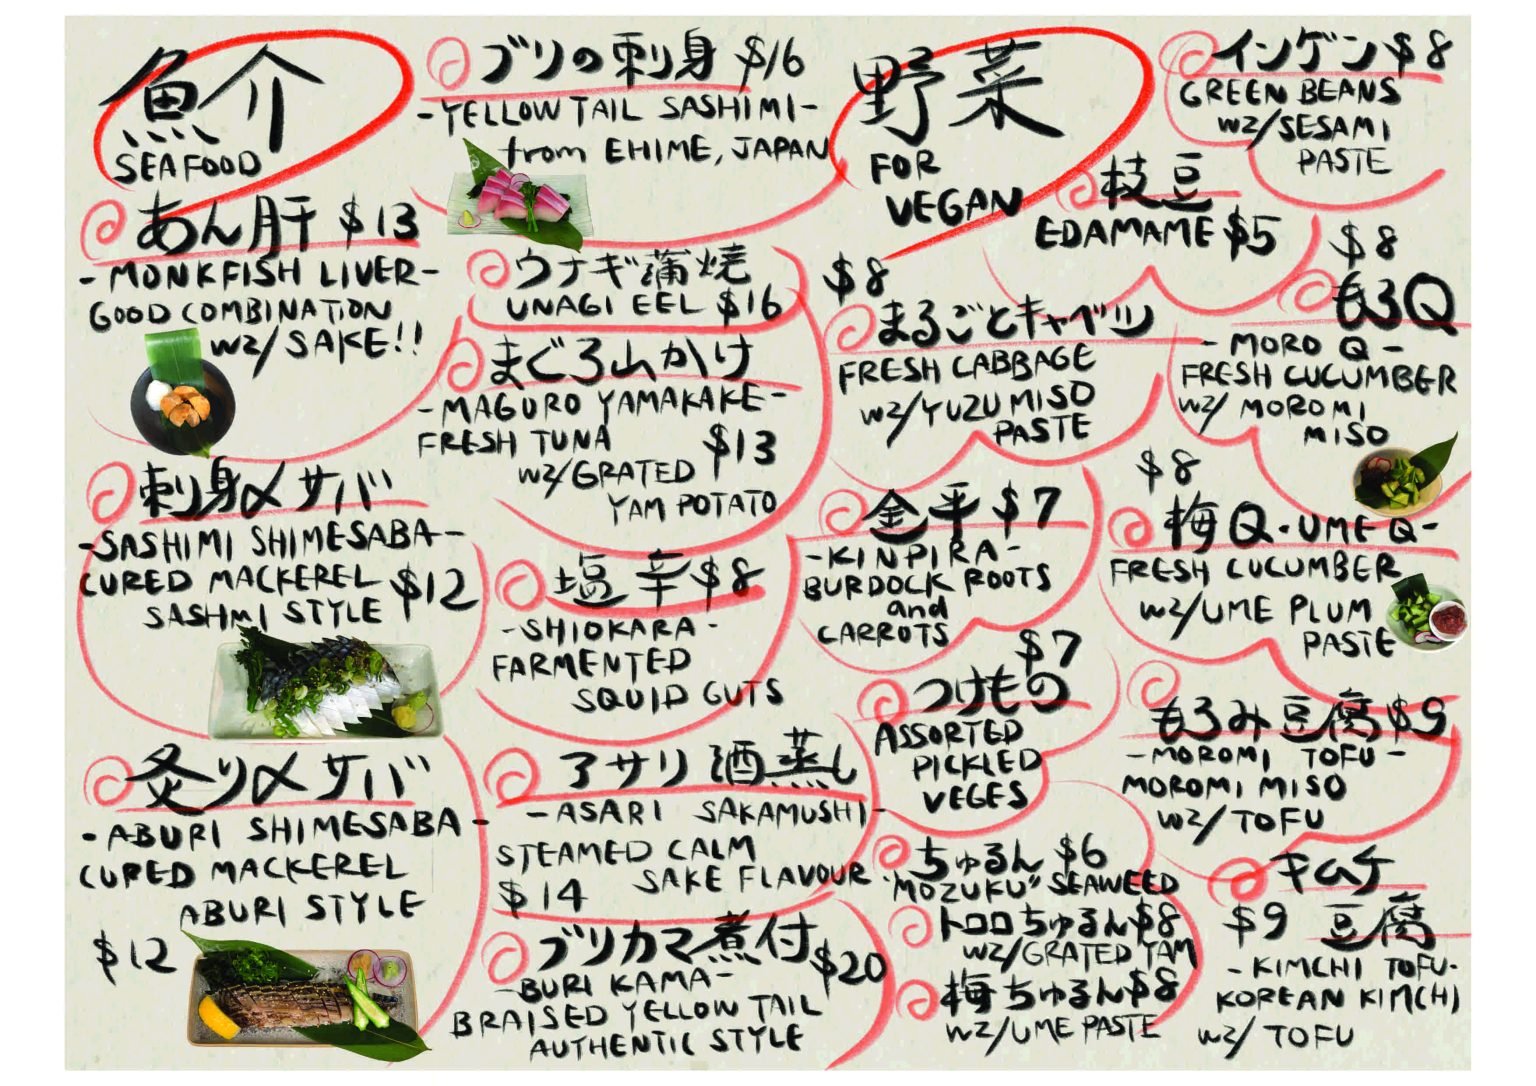 魚介
SEAFOOD
あん肝 $13
-MONKFISH LIVER-
GOOD COMBINATION
WZ/SAKE!!
刺身〆サバ
-SASHIMI SHIMESABA-
CURED MACKEREL $12
SASHMI STYLE
炙り〆サバ
-ABURI SHIMESABA-
CURED MACKEREL
ABURI STYLE
$12
ブリの刺身 $16
-YELLOW TAIL SASHIMI-
from EHIME, JAPAN
ウナギ蒲焼
UNAGI EEL $16
まぐろ山かけ
-MAGURO YAMAKAKE-
FRESH TUNA $13
WZ/GRATED
YAM POTATO
塩辛 $8
-SHIOKARA-
FARMENTED
SQUID GUTS
アサリ酒蒸し
-ASARI SAKAMUSHI-
STEAMED CALM
SAKE FLAVOUR
$14
ブリカマ煮付 $20
-BURI KAMA-
BRAISED YELLOW TAIL
AUTHENTIC STYLE
野菜
FOR
VEGAN
$8
まるごとキャベツ
FRESH CABBAGE
WZ/YUZU MISO
PASTE
金平 $7
-KINPIRA-
BURDOCK ROOTS
and
CARROTS
$7
つけもの
ASSORTED
PICKLED
VEGES
ちゅるん $6
"MOZUKU" SEAWEED
トロロちゅるん $8
WZ/GRATED YAM
梅ちゅるん $8
WZ/UME PASTE
インゲン $8
GREEN BEANS
WZ/SESAMI
PASTE
枝豆
EDAMAME $5
$8
もろQ
-MORO Q-
FRESH CUCUMBER
WZ/MOROMI
MISO
$8
梅Q・UME Q-
FRESH CUCUMBER
WZ/UME PLUM
PASTE
もろみ豆腐 $9
-MOROMI TOFU-
MOROMI MISO
WZ/TOFU
キムチ
$9 豆腐
-KIMCHI TOFU-
KOREAN KIMCHI
WZ/TOFU